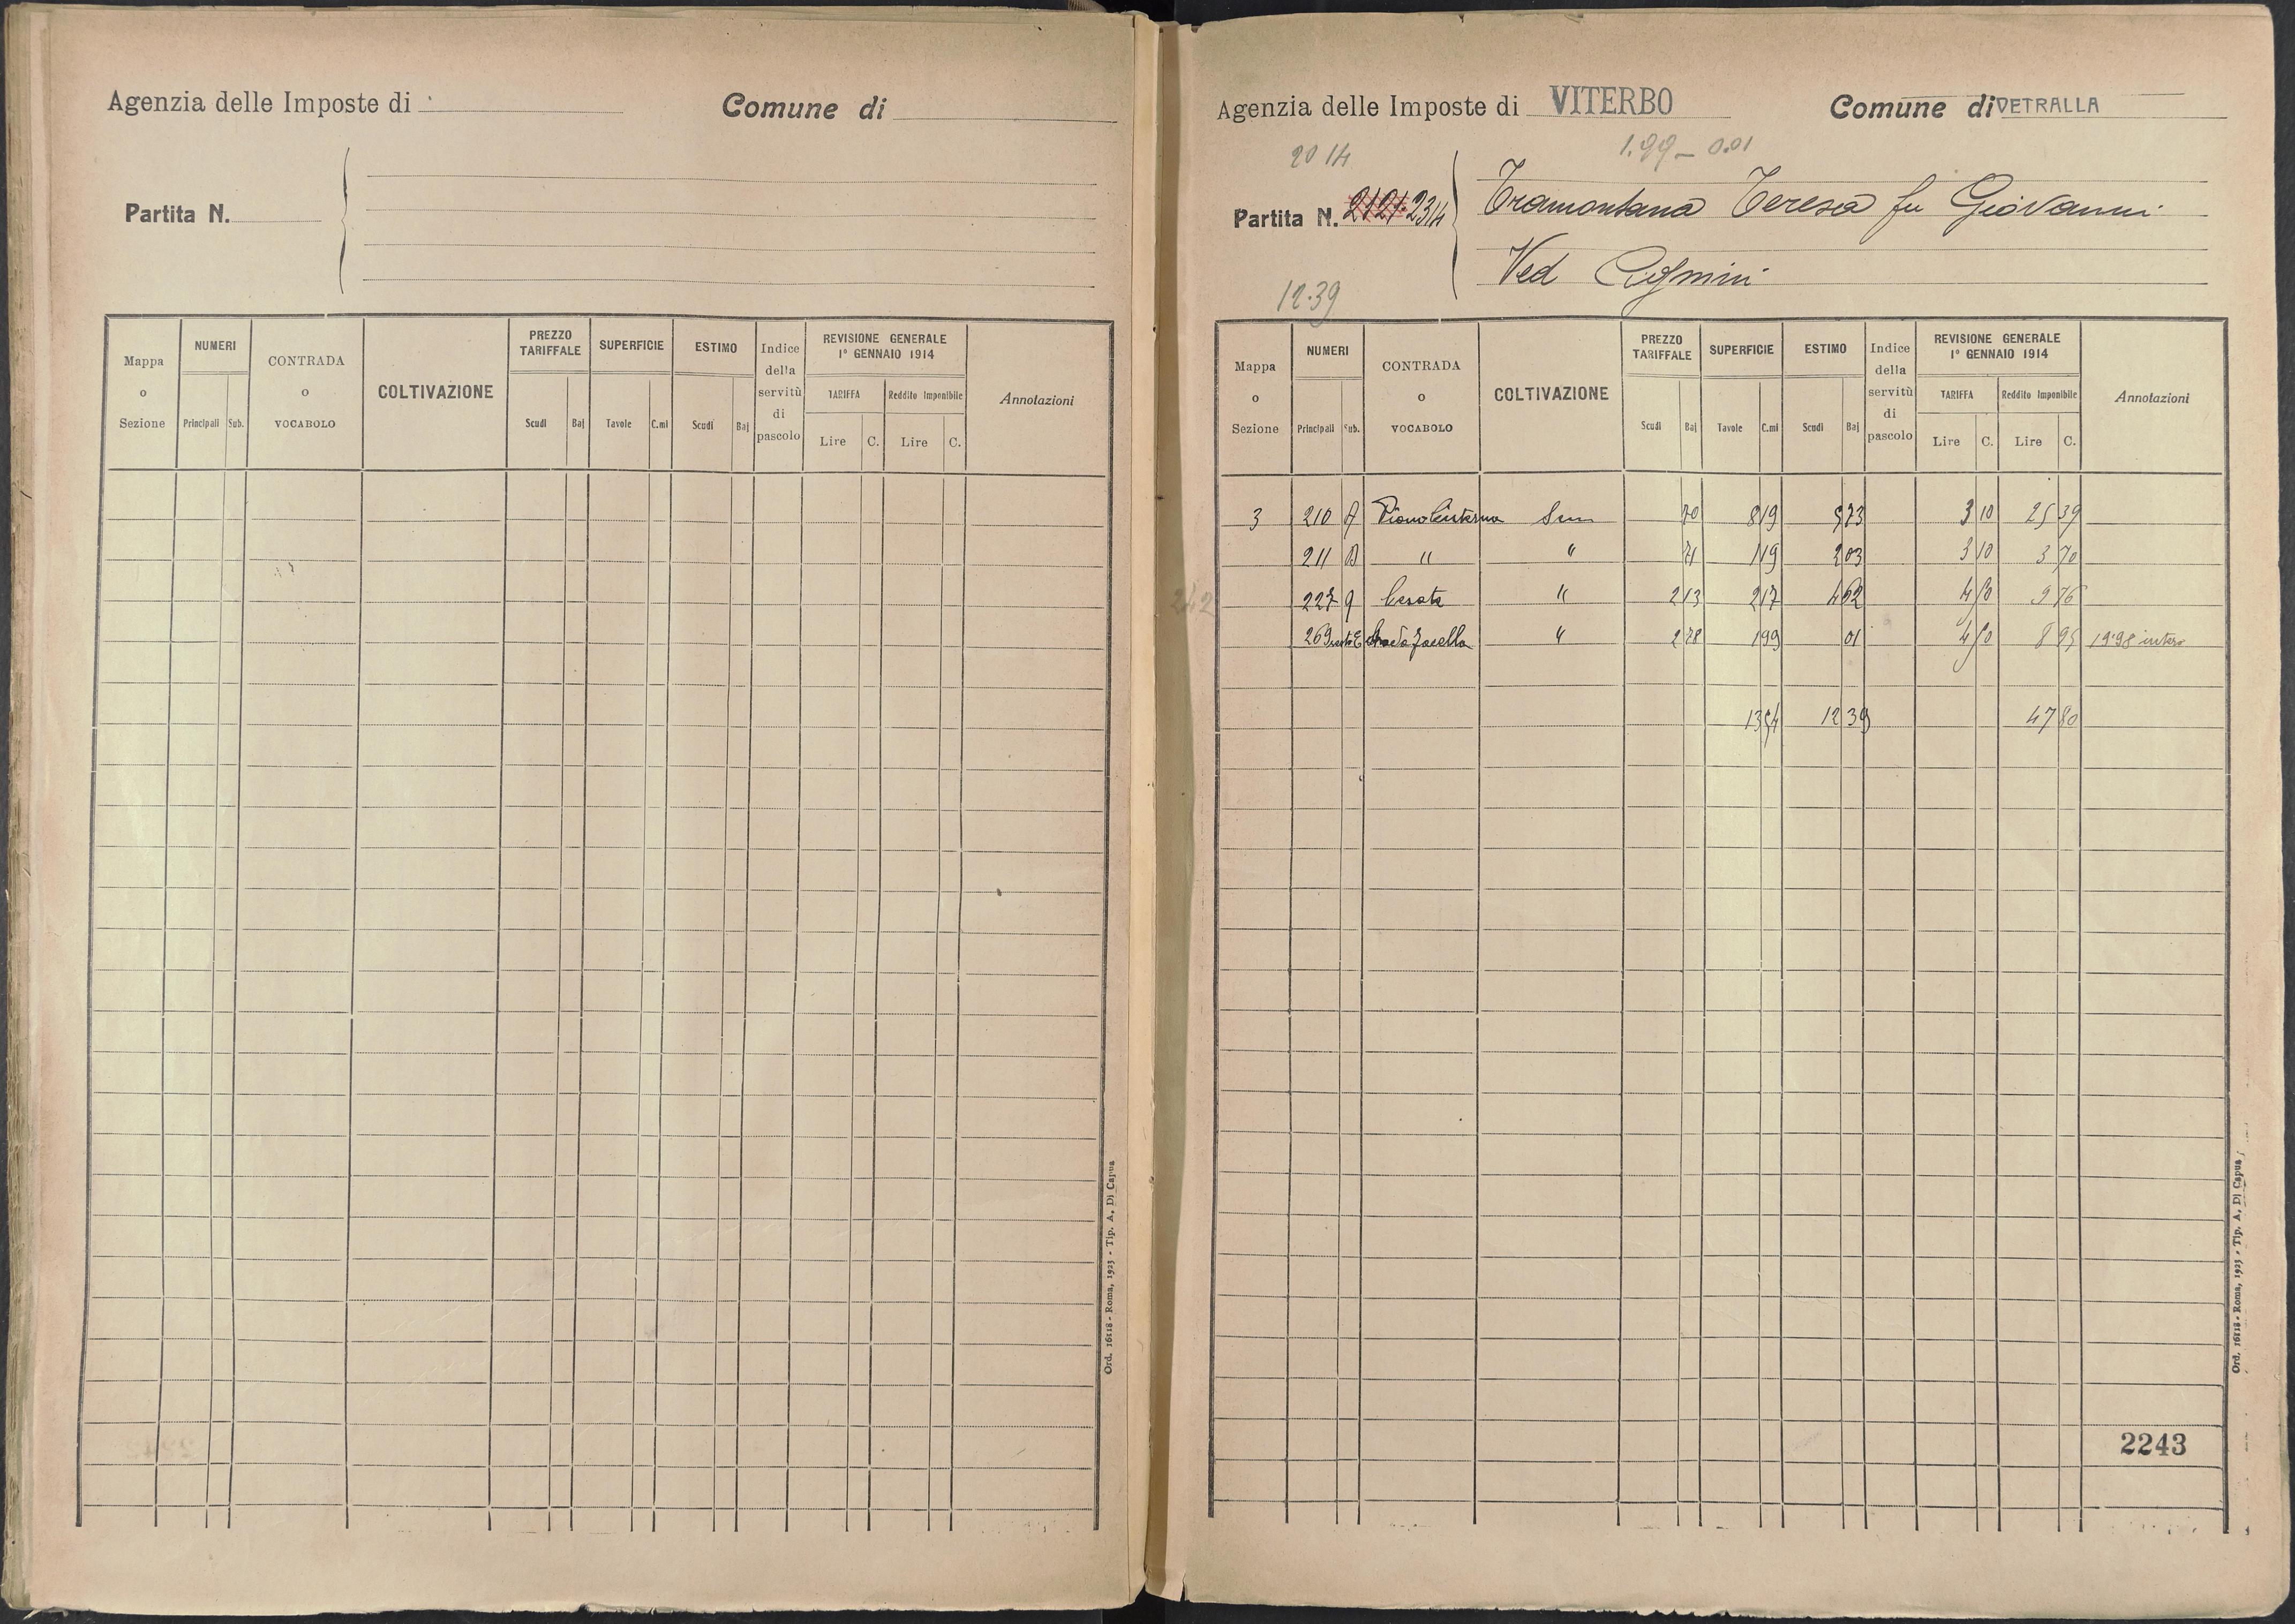 Agenzia delle Imposte di
Comune di
Partita N.
Mappa o Sezione
NUMERI
Principali Sub.
CONTRADA o VOCABOLO
COLTIVAZIONE
PREZZO TARIFFALE
Scudi Baj
SUPERFICIE
Tavole C.mi
ESTIMO
Scudi Baj
Indice della servitù di pascolo
REVISIONE GENERALE
1° GENNAIO 1914
TARIFFA Reddito Imponibile
Lire C. Lire C.
Annotazioni
Ord. 16118 - Roma, 1923 - Tip. A. Di Capua
Agenzia delle Imposte di VITERBO
Comune di VETRALLA
2014
1.99 - 0.01
Partita N. 2121 2314
Tramontana Teresa fu Giovanni
Ved
12.39
Mappa o Sezione
NUMERI
Principali Sub.
CONTRADA o VOCABOLO
COLTIVAZIONE
PREZZO TARIFFALE
Scudi Baj
SUPERFICIE
Tavole C.mi
ESTIMO
Scudi Baj
Indice della servitù di pascolo
REVISIONE GENERALE
1° GENNAIO 1914
TARIFFA Reddito Imponibile
Lire C. Lire C.
Annotazioni
3 210 Piano Cisterna Sem 70 8 19 5 73 3 10 25 39
211 " " 71 1 19 2 03 3 10 3 70
227 Cerata " 2 13 2 17 4 62 4 50 9 76
242
269 " 2 78 1 99 01 4 50 8 95 1998 intero
13 54 12 39 47 80
2243
Ord. 16118 - Roma, 1923 - Tip. A. Di Capua